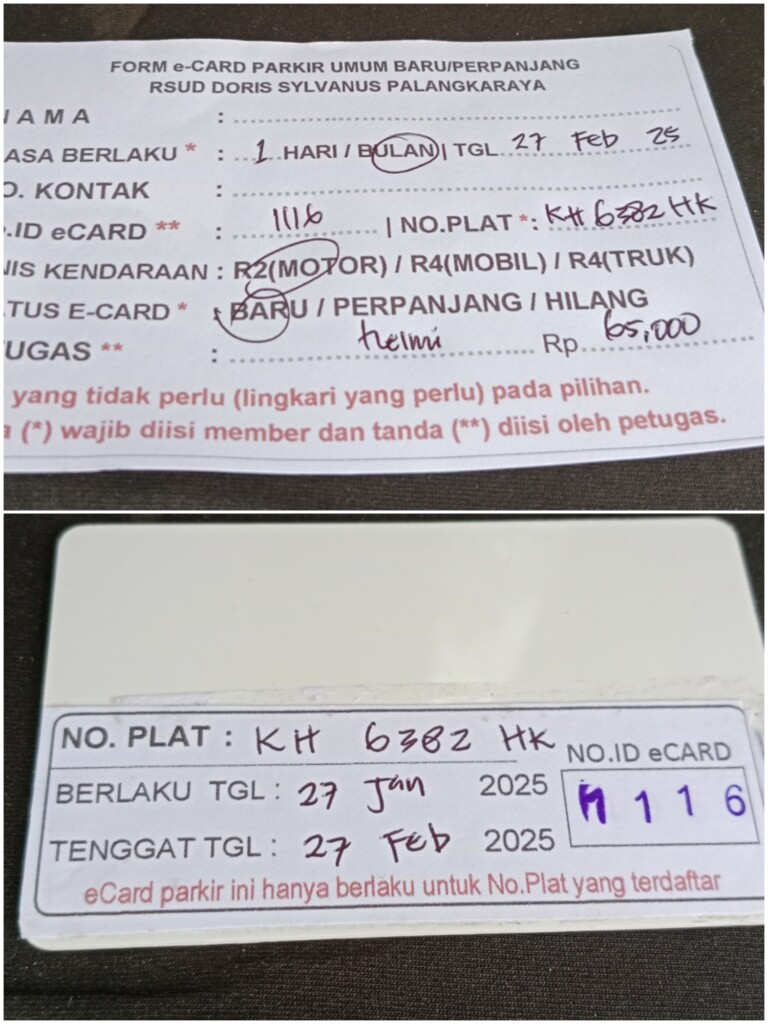 FORM e-CARD PARKIR UMUM BARU/PERPANJANG
RSUD DORIS SYLVANUS PALANGKARAYA
AMA :
ASA BERLAKU * : 1 HARI / BULAN | TGL 27 Feb 25
O. KONTAK :
.ID eCARD ** : 1116 | NO.PLAT *: KH 6382 HK
NIS KENDARAAN : R2(MOTOR) / R4(MOBIL) / R4(TRUK)
TUS E-CARD * : BARU / PERPANJANG / HILANG
UGAS ** : helmi Rp. 65,000
yang tidak perlu (lingkari yang perlu) pada pilihan.
a (*) wajib diisi member dan tanda (**) diisi oleh petugas.
NO. PLAT : KH 6382 HK
NO.ID eCARD
BERLAKU TGL : 27 Jan 2025
1116
TENGGAT TGL : 27 Feb 2025
eCard parkir ini hanya berlaku untuk No.Plat yang terdaftar